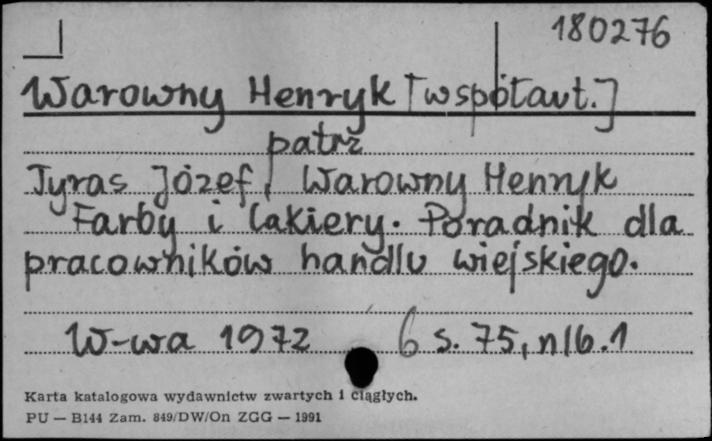 180276
Warowny Henryk [współaut.]
patrz
Tyras Józef, Warowny Henryk
Farby i lakiery. Poradnik dla
pracowników handlu wiejskiego.
W-wa 1972 6 s. 75, nlb. 1
Karta katalogowa wydawnictw zwartych i ciągłych.
PU — B144 Zam. 849/DW/On ZGG — 1991